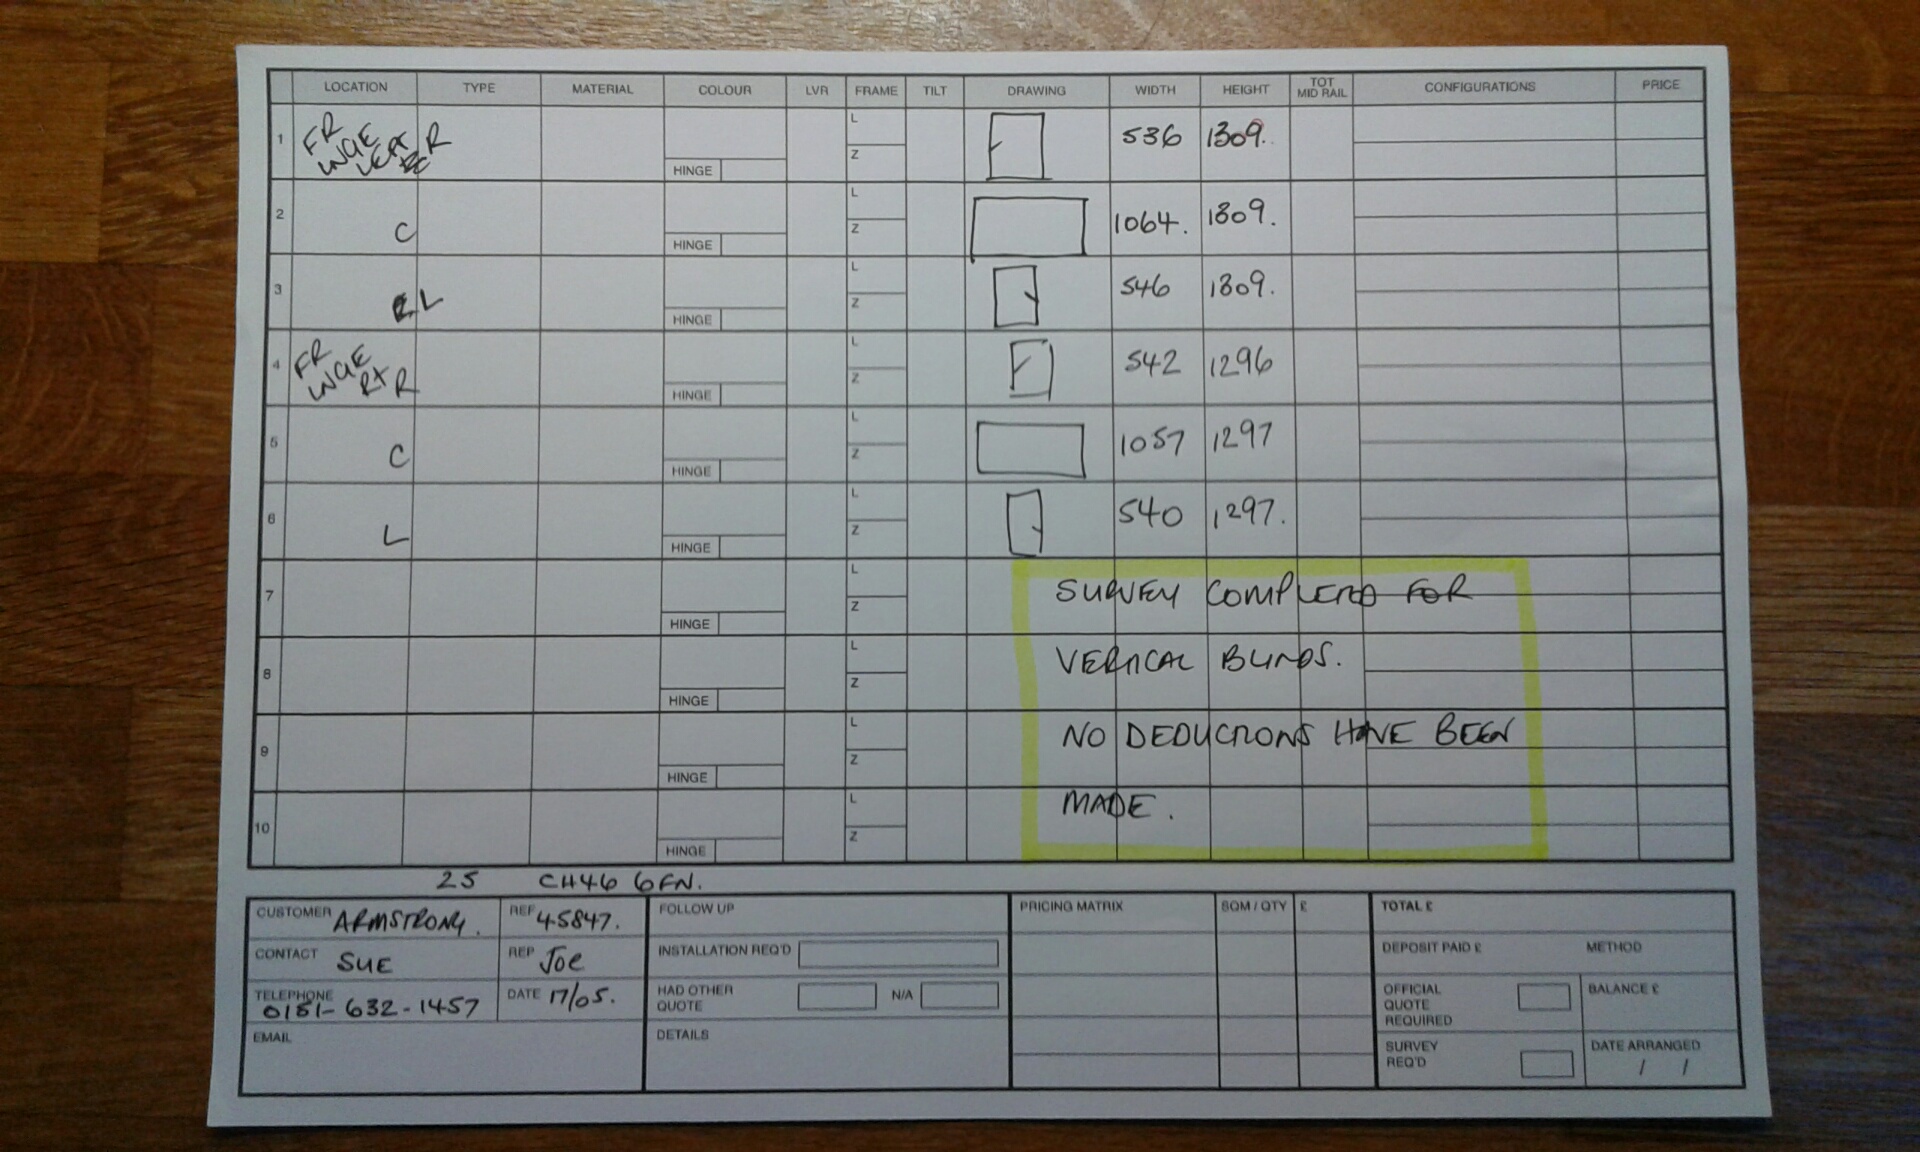 LOCATION TYPE MATERIAL COLOUR LVR FRAME TILT DRAWING WIDTH HEIGHT TOT MID RAIL CONFIGURATIONS PRICE
1 FR L 536 1309.
R
Z
HINGE
2 C L 1064. 1309.
Z
HINGE
3 L L 546 1309.
Z
HINGE
4 FR L 542 1296
R
Z
HINGE
5 C L 1057 1297
Z
HINGE
6 L L 540 1297.
Z
HINGE
7 L SURVEY COMPLETED FOR
Z
HINGE
8 L VERTICAL BLINDS.
Z
HINGE
9 L NO DEDUCTIONS HAVE BEEN
Z
HINGE
10 L MADE.
Z
HINGE
25 CH46 6FN.
CUSTOMER ARMSTRONG. REF 45847. FOLLOW UP PRICING MATRIX SQM / QTY £ TOTAL £
CONTACT SUE REP JOE INSTALLATION REQ'D DEPOSIT PAID £ METHOD
TELEPHONE 0151-632-1457 DATE 17/05. HAD OTHER QUOTE N/A OFFICIAL QUOTE REQUIRED BALANCE £
EMAIL DETAILS SURVEY REQ'D DATE ARRANGED
/ /